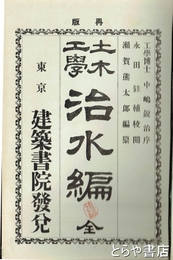 再版
工學博士 中嶋鋭治序
永田鉎輔校閲
瀬賀熊太郎編纂
土木工學
治水編 全
東京 建築書院發兌
とらや書房